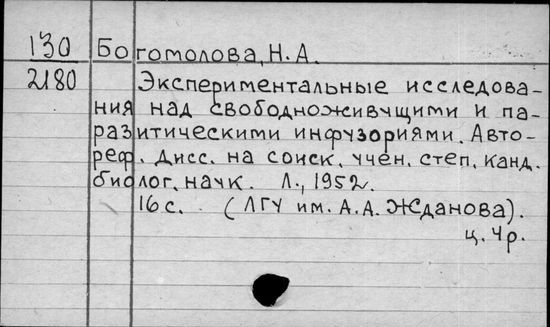 130 Богомолова, Н. А.
2180 Экспериментальные исследова-
ния над свободноживущими и па-
разитическими инфузориями. Авто-
реф. дисс. на соиск. учен. степ. канд.
биолог. наук. Л., 1952.
16 с. (ЛГУ им. А. А. Жданова).
ц. 4р.